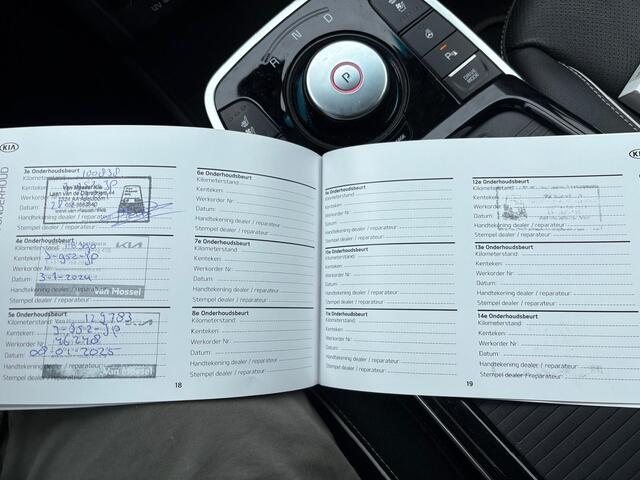 UV
R
N
D
P
DRIVE
MODE
KIA
ONDERHOUD
3e Onderhoudsbeurt
Kilometerstand:
Kenteken:
Werkorder
Datum:
Handtekening dealer / reparateur
Stempel dealer / reparateur
Van Mossel Kia
4e Onderhoudsbeurt
Kilometerstand
Kenteken:
Werkorder Nr:
Datum: 3-1-2024
Handtekening dealer / reparateur
Stempel dealer / reparateur
KIA
Van Mossel
5e Onderhoudsbeurt
Kilometerstand: 129783
Kenteken:
Werkorder Nr:
Datum: 08-01-2025
Handtekening dealer / reparateur
Stempel dealer / reparateur
Van Mossel
6e Onderhoudsbeurt
Kilometerstand:
Kenteken:
Werkorder Nr:
Datum:
Handtekening dealer / reparateur
Stempel dealer / reparateur
7e Onderhoudsbeurt
Kilometerstand:
Kenteken:
Werkorder Nr:
Datum:
Handtekening dealer / reparateur
Stempel dealer / reparateur
8e Onderhoudsbeurt
Kilometerstand:
Kenteken:
Werkorder Nr:
Datum:
Handtekening dealer / reparateur
Stempel dealer / reparateur
18
9e Onderhoudsbeurt
Kilometerstand:
Kenteken:
Werkorder Nr:
Datum:
Handtekening dealer / reparateur
Stempel dealer / reparateur
10e Onderhoudsbeurt
Kilometerstand:
Kenteken:
Werkorder Nr:
Datum:
Handtekening dealer / reparateur
Stempel dealer / reparateur
11e Onderhoudsbeurt
Kilometerstand:
Kenteken:
Werkorder Nr:
Datum:
Handtekening dealer / reparateur
Stempel dealer / reparateur
12e Onderhoudsbeurt
Kilometerstand:
Kenteken:
Werkorder Nr:
Datum:
Handtekening dealer / reparateur
Stempel dealer / reparateur
13e Onderhoudsbeurt
Kilometerstand:
Kenteken:
Werkorder Nr:
Datum:
Handtekening dealer / reparateur
Stempel dealer / reparateur
14e Onderhoudsbeurt
Kilometerstand:
Kenteken:
Werkorder Nr:
Datum:
Handtekening dealer / reparateur
Stempel dealer / reparateur
19